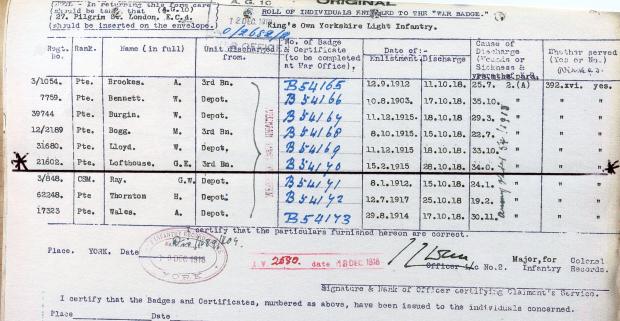 NOTE. - In returning this form care
should be taken that (A.G.10)
27. Pilgrim St. London, E.C.4.
should be inserted on the envelope.
A.G. 10
ORIGINAL
ROLL OF INDIVIDUALS ENTITLED TO THE "WAR BADGE."
12 DEC 1918
King's Own Yorkshire Light Infantry.
Regt. No. Rank. Name (in full) Unit discharged from. No. of Badge & Certificate (to be completed at War Office). Date of:- Enlistment. Discharge Cause of Discharge (Wounds or Sickness & Whether served (Yes or No)
3/1054. Pte. Brookes. A. 3rd Bn. B54165 12.9.1912 11.10.18 25.7. 2.(A) 392.xvi. yes.
7759. Pte. Bennett. W. Depot. B54166 10.8.1903. 17.10.18 35.10. " " "
39744 Pte. Burgin. W. Depot. B54167 11.12.1915. 18.10.18 29.3. " " "
12/2189 Pte. Bogg. M. 3rd Bn. B54168 8.10.1915 15.10.18 22.7. " " "
31680. Pte. Lloyd. W. Depot. B54169 11.12.1915 18.10.18 33.10. " " "
21602. Pte. Lofthouse. G.E. 3rd Bn. B54170 15.2.1915 28.10.18 34.0. " " "
3/848. CSM. Ray. G.W. Depot. B54171 8.1.1912. 15.10.18 24.1. " " "
62248. Pte Thornton H. Depot. B54172 12.7.1917 25.10.18 19.2. " " "
17323 Pte. Wales. A. Depot. B54173 29.8.1914 17.10.18 30.11. " " "
I certify that the particulars furnished hereon are correct.
Place. YORK. Date
DEC 1918
YORK
I.V. 2530. date 12 DEC 1918
Major, for Colonel
Officer i/c No.2. Infantry Records.
Signature & Rank of Officer certifying Claimant's Service.
I certify that the Badges and Certificates, numbered as above, have been issued to the individuals concerned.
Place Date